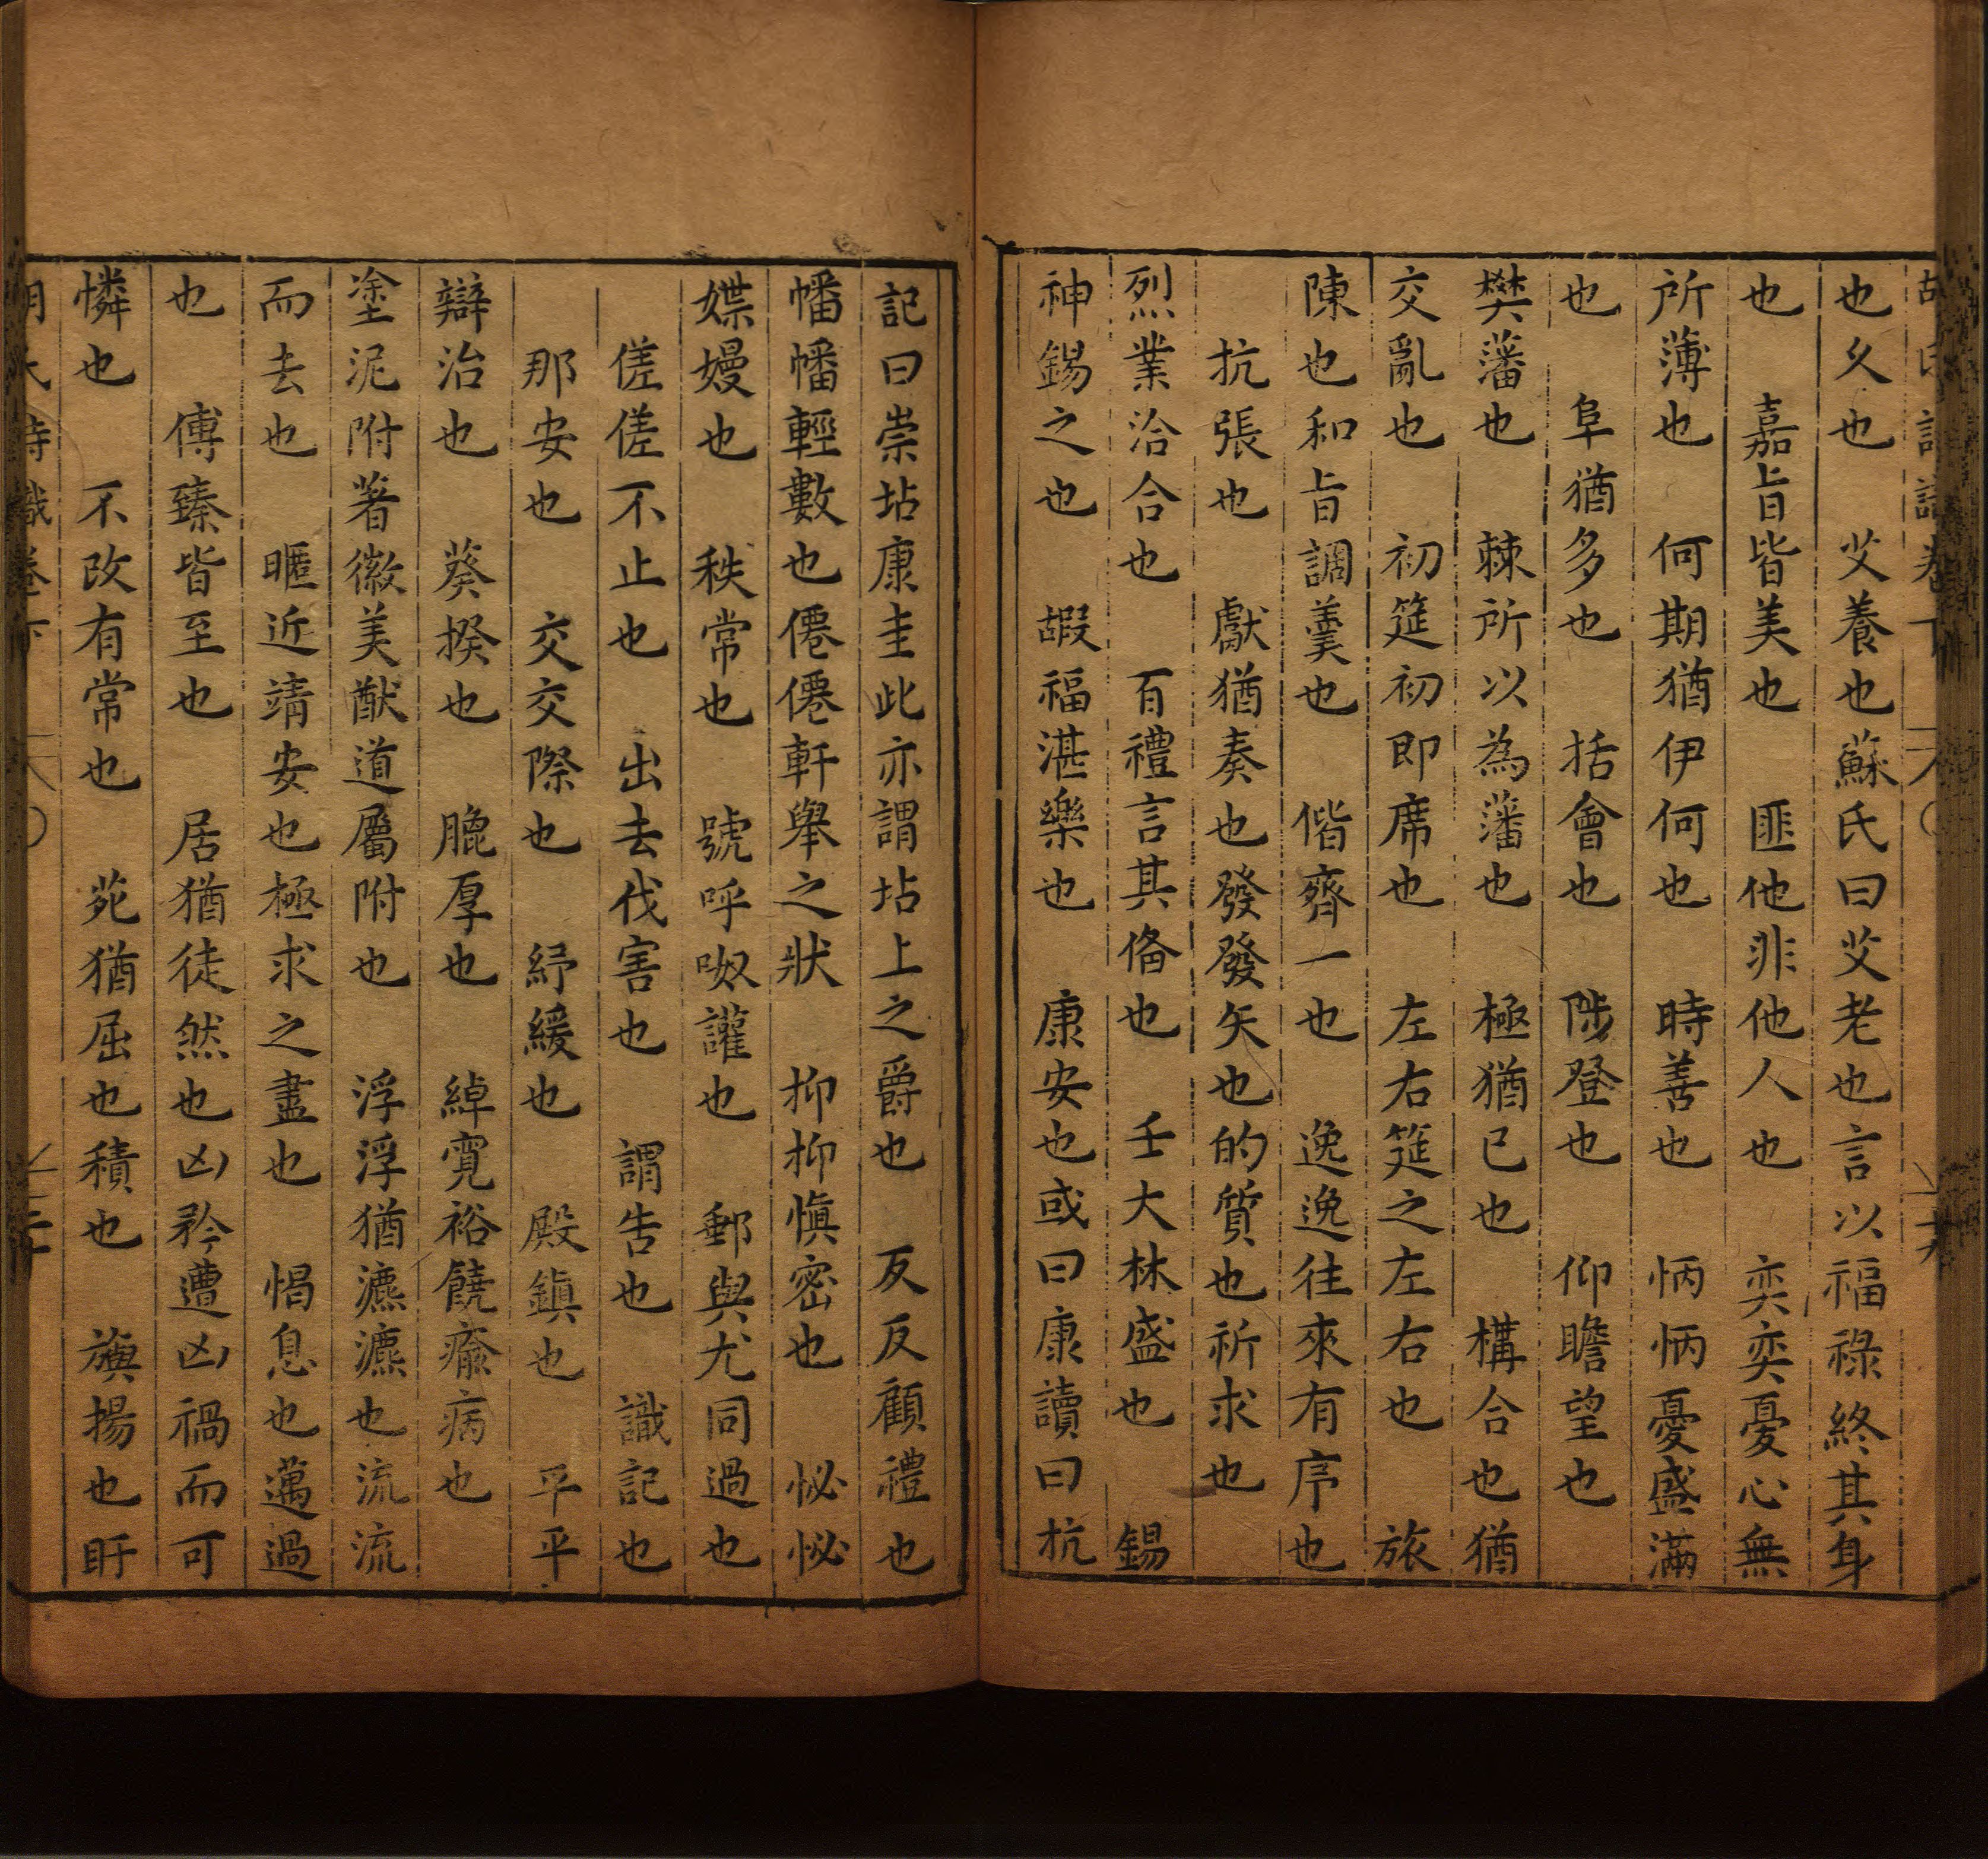 也久也　艾養也蘇氏曰艾老也言以福祿終其身
也　嘉旨皆美也　匪他非他人也　奕奕憂心無
所薄也　何期猶伊何也　時善也　怲怲憂盛滿
也　阜猶多也　括會也　陟登也　仰瞻望也
樊藩也　棘所以為藩也　極猶已也　構合也猶
交亂也　初筵初即席也　左右筵之左右也　旅
陳也和旨調美也　偕齊一也　逸逸往來有序也
抗張也　獻猶奏也發發矢也的質也祈求也
烈業洽合也　百禮言其俻也　壬大林盛也　錫
神錫之也　嘏福湛樂也　康安也或曰康讀曰抗
記曰崇坫康圭此亦謂坫上之爵也　反反顧禮也
幡幡輕數也僊僊軒舉之狀　抑抑慎密也　怭怭
媟嫚也　秩常也　號呼呶讙也　郵與尤同過也
傞傞不止也　出去伐害也　謂告也　識記也
那安也　交交際也　紓緩也　殿鎮也　平平
辯治也　葵揆也　膍厚也　綽寬裕饒瘉病也
塗泥附著徽美猷道屬附也　浮浮猶瀌瀌也流流
而去也　暱近靖安也極求之盡也　愒息也邁過
也　傅臻皆至也　居猶徒然也凶矜遭凶禍而可
憐也　不改有常也　苑猶屈也積也　旟揚也盱